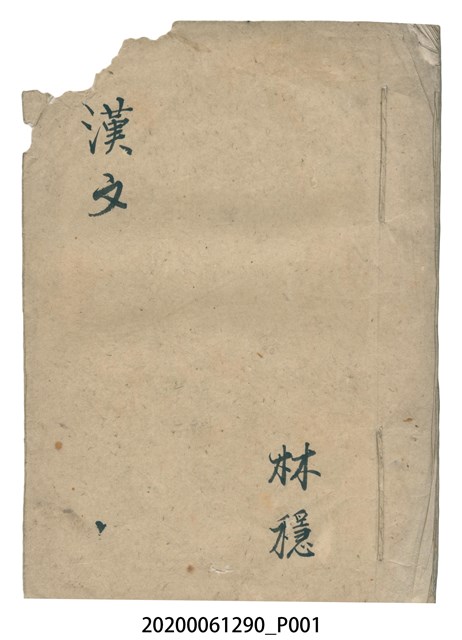 漢文
林穩
20200061290_P001